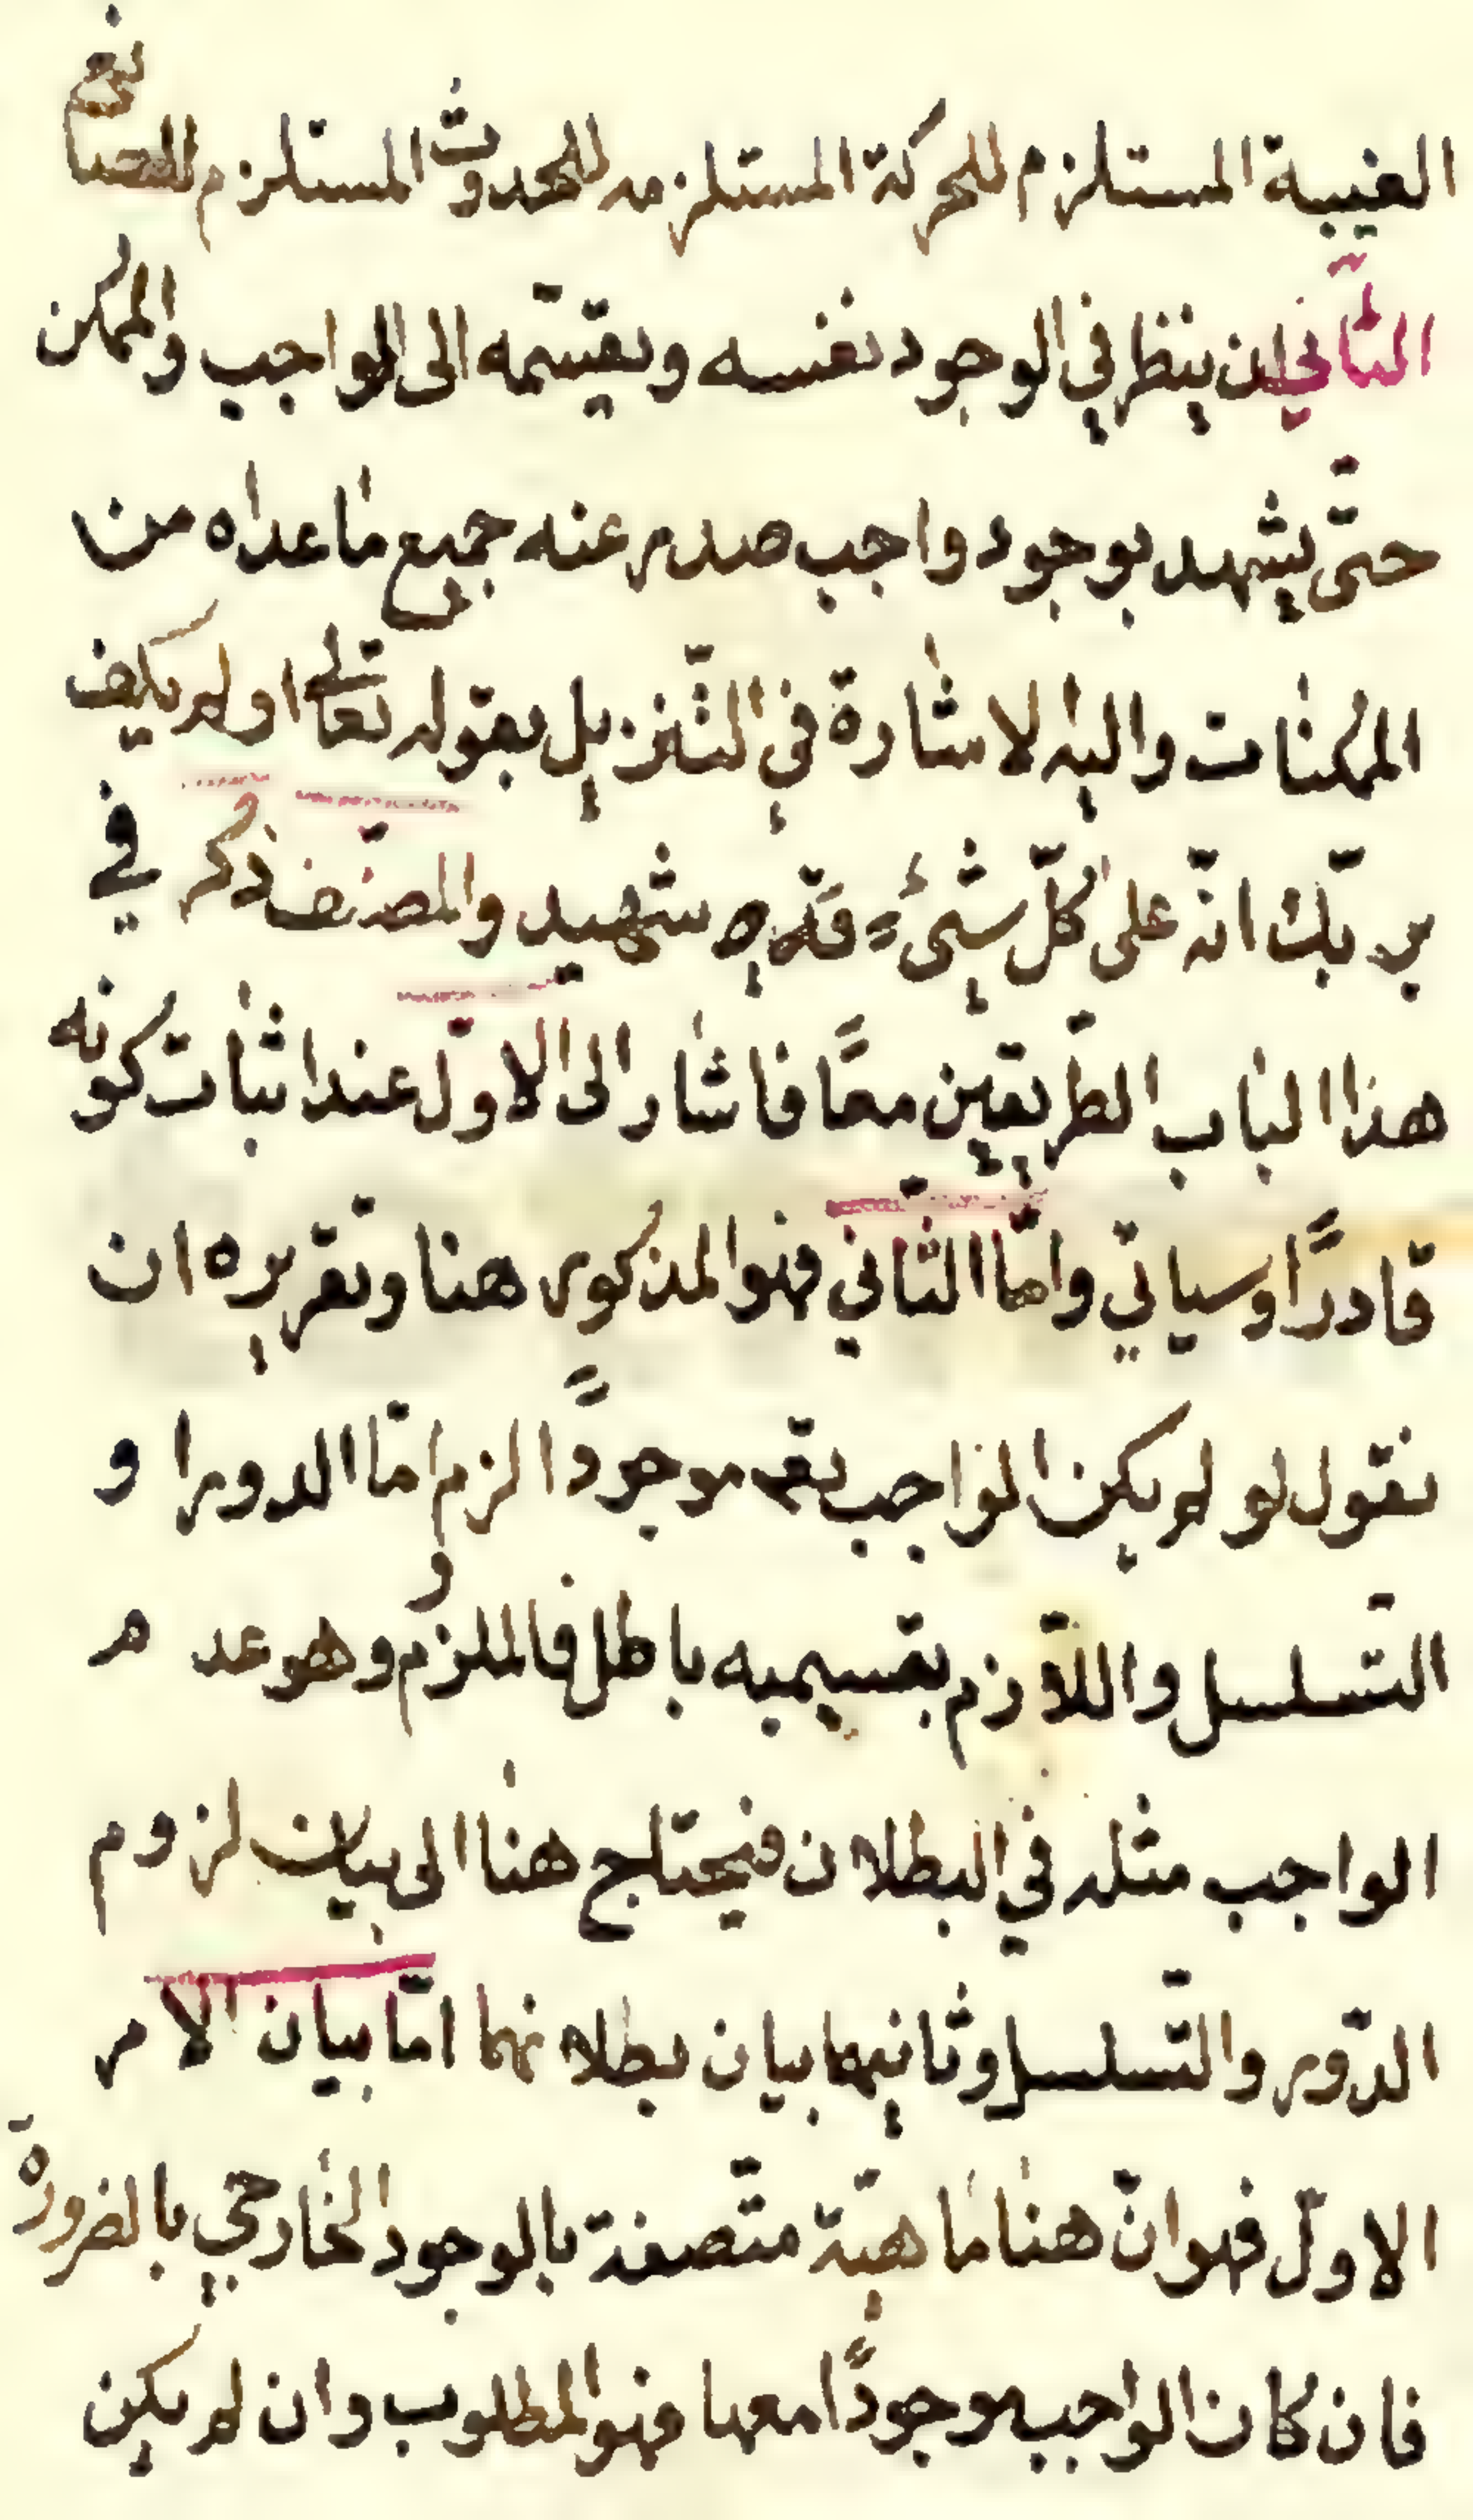 الغيبة المستلزم للحركة المستلزمه للحدوث المستلزم للصانع
الثاني ان ينظر في الوجود نفسه ويقسّمه الى الواجب والممكن
حتّى يشهد بوجود واجب صدر عنه جميع ما عداه من
الممكنات واليه الاشارة في التّنزيل بقوله تعالى اولم يكف
بربّك انّه على كلّ شيءٍ شهيد والمصنّف ذكر في
هذا الباب الطّريقين معًا فاشار الى الاوّل عند اثبات كونه
قادرًا وسياتي وامّا الثّاني فهو المذكور هنا وتقريره ان
نقول لو لم يكن الواجب تعم موجودًا لزم امّا الدور او
التّسلسل واللّازم بقسيميه باطل فالملزوم وهو عدم
الواجب مثله في البطلان فيحتاج هنا الى بيان لزوم
الدّور والتّسلسل وثانيهما بيان بطلانهما امّا بيان الامر
الاوّل فهو انّ هنا ماهيّة متّصفة بالوجود الخارجي بالضرورة
فان كان الواجب موجودًا معها فهو المطلوب وان لم يكن